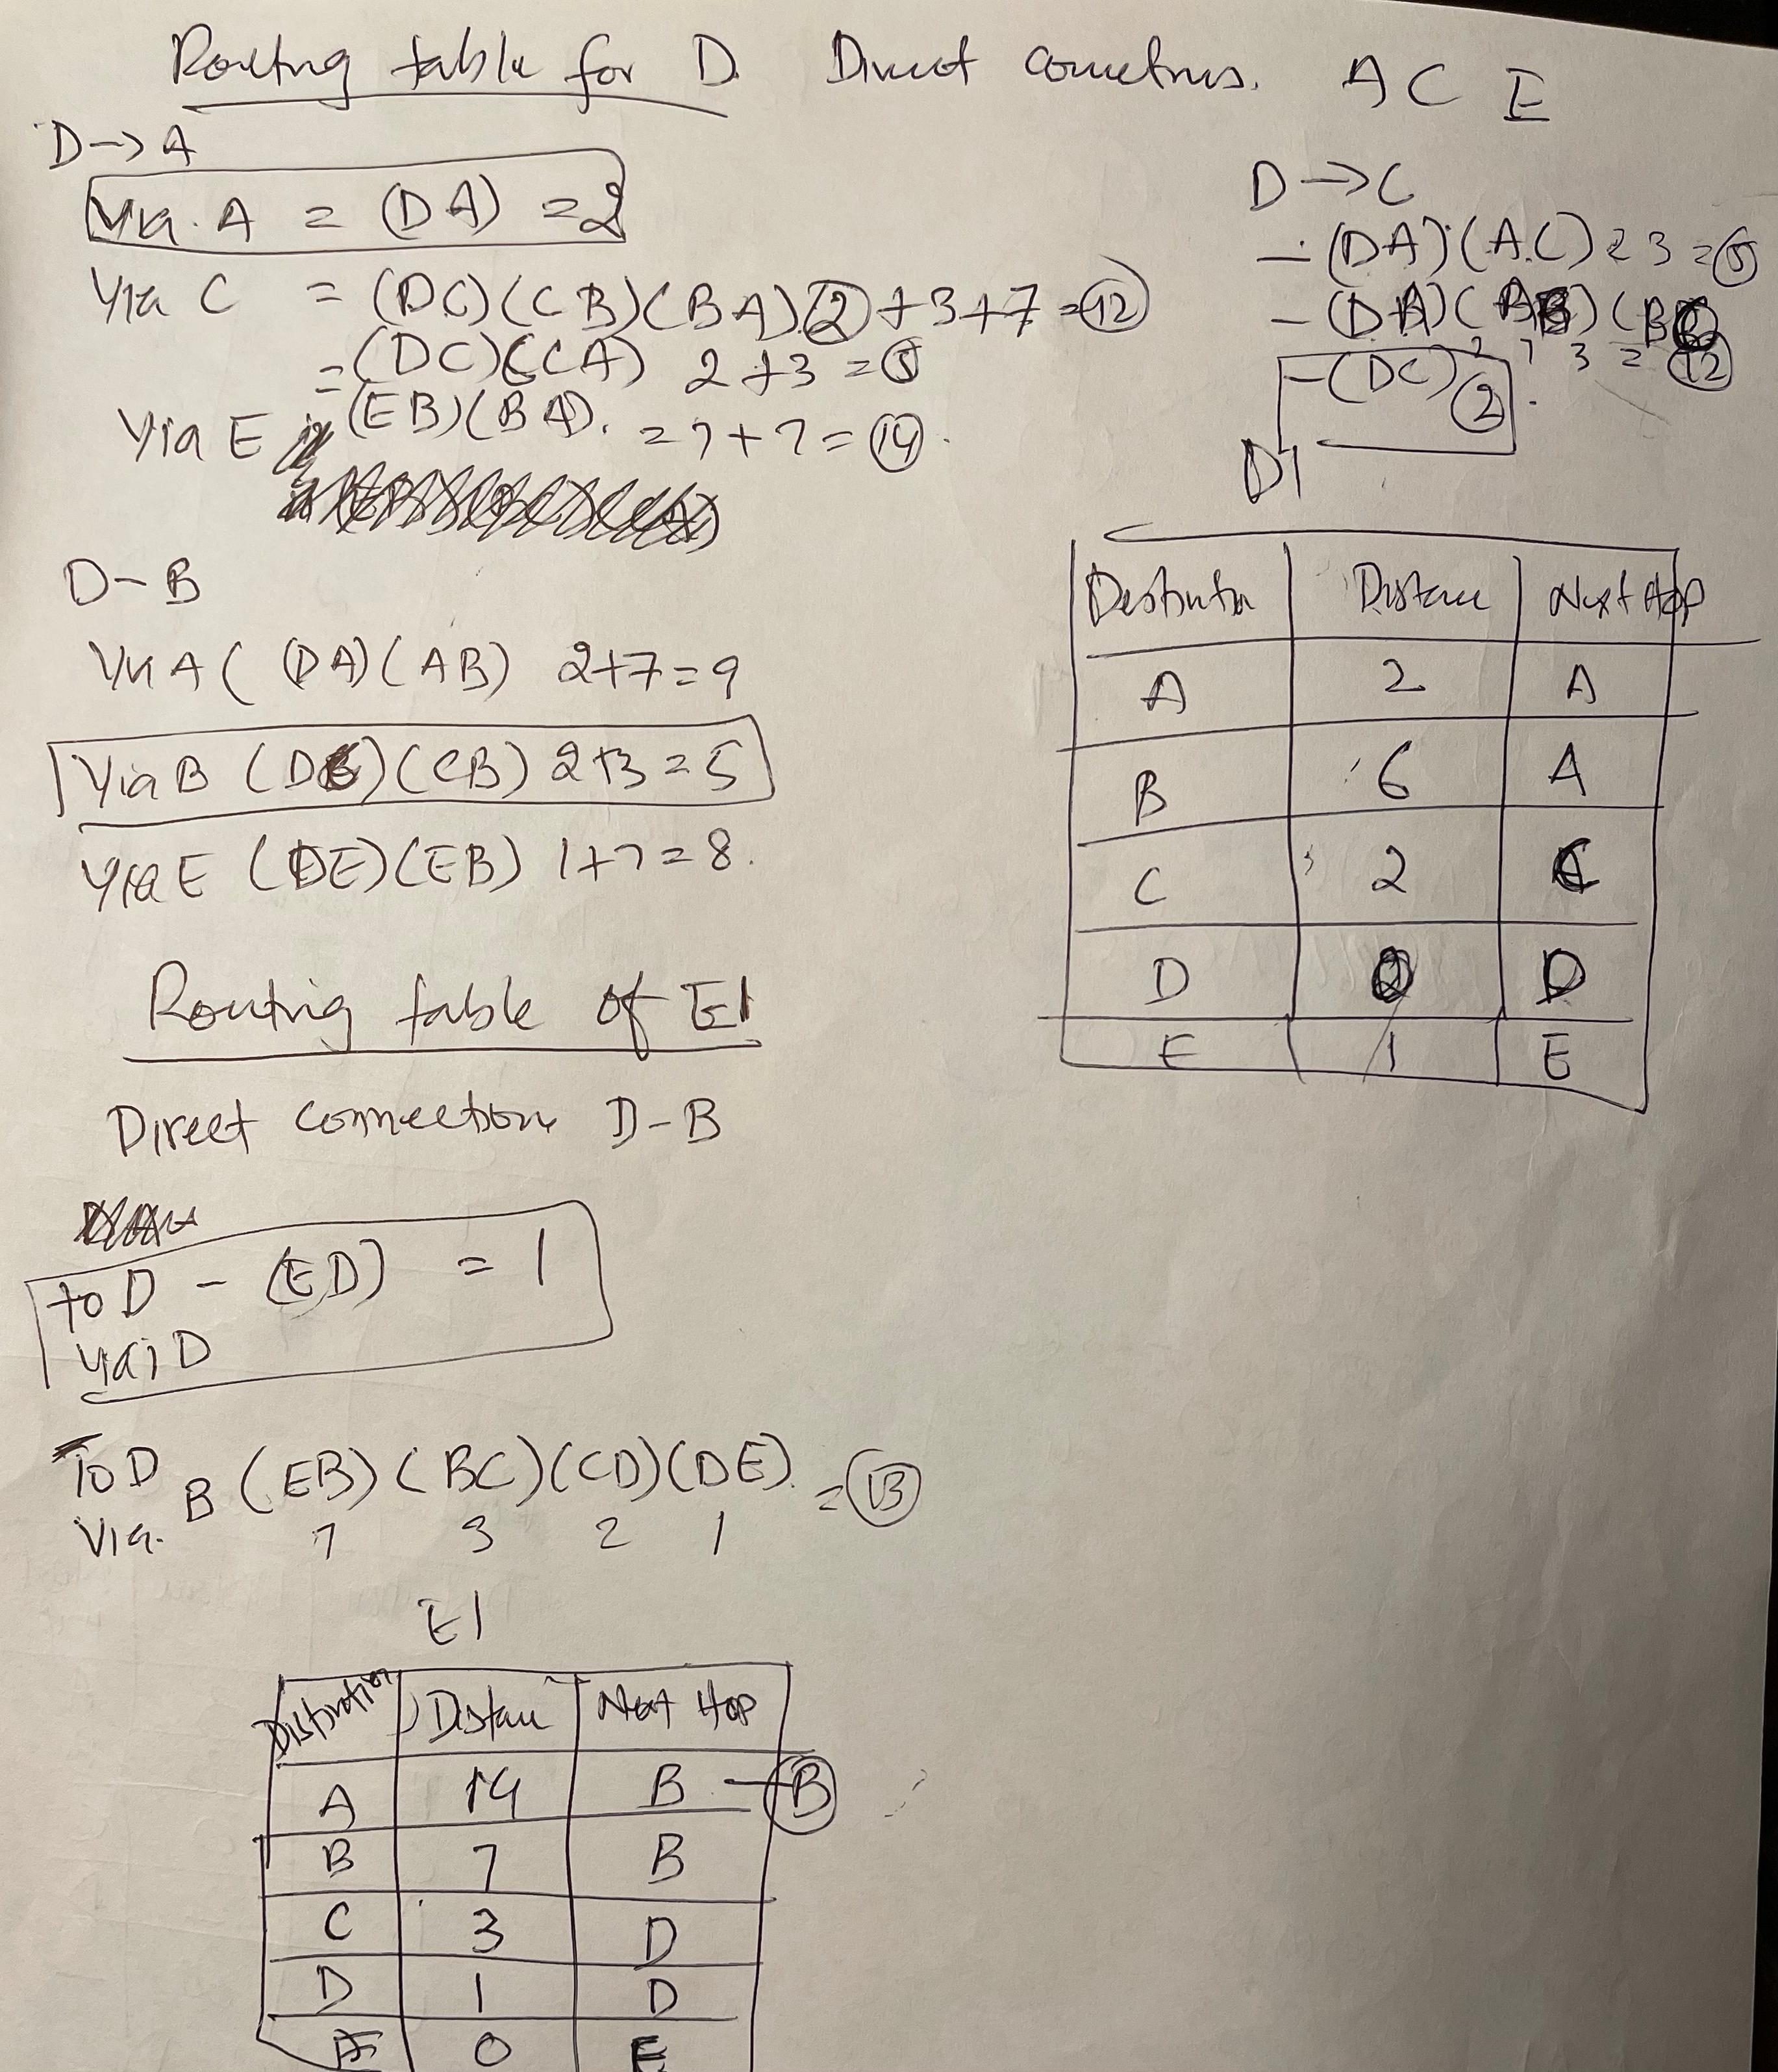 Routing table for D. Direct connectns. A C E
D → A
Via. A = (DA) = 2
Via C = (DC)(CB)(BA) 2 + 3 + 7 = 12
= (DC)(CA) 2 + 3 = 5
Via E (EB)(BA). = 7 + 7 = 14.
D → C
- (DA)(AC) 2 3 = 5
- (DA)(AB)(BC)
2 7 3 = 12
- (DC) 2
D1
D - B
Via A ( (DA)(AB) 2+7=9
Via B (DC)(CB) 2+3=5
Via E (DE)(EB) 1+7=8.
Destinatn Distance Next Hop
A 2 A
B 6 A
C 2 C
D 0 D
E 1 E
Routing table of E1
Direct connection D-B
to D - (ED) = 1
vai D
To D B (EB)(BC)(CD)(DE). = 13
Via. 7 3 2 1
E1
Distination Distan Next Hop
A 14 B - B
B 7 B
C 3 D
D 1 D
E 0 E